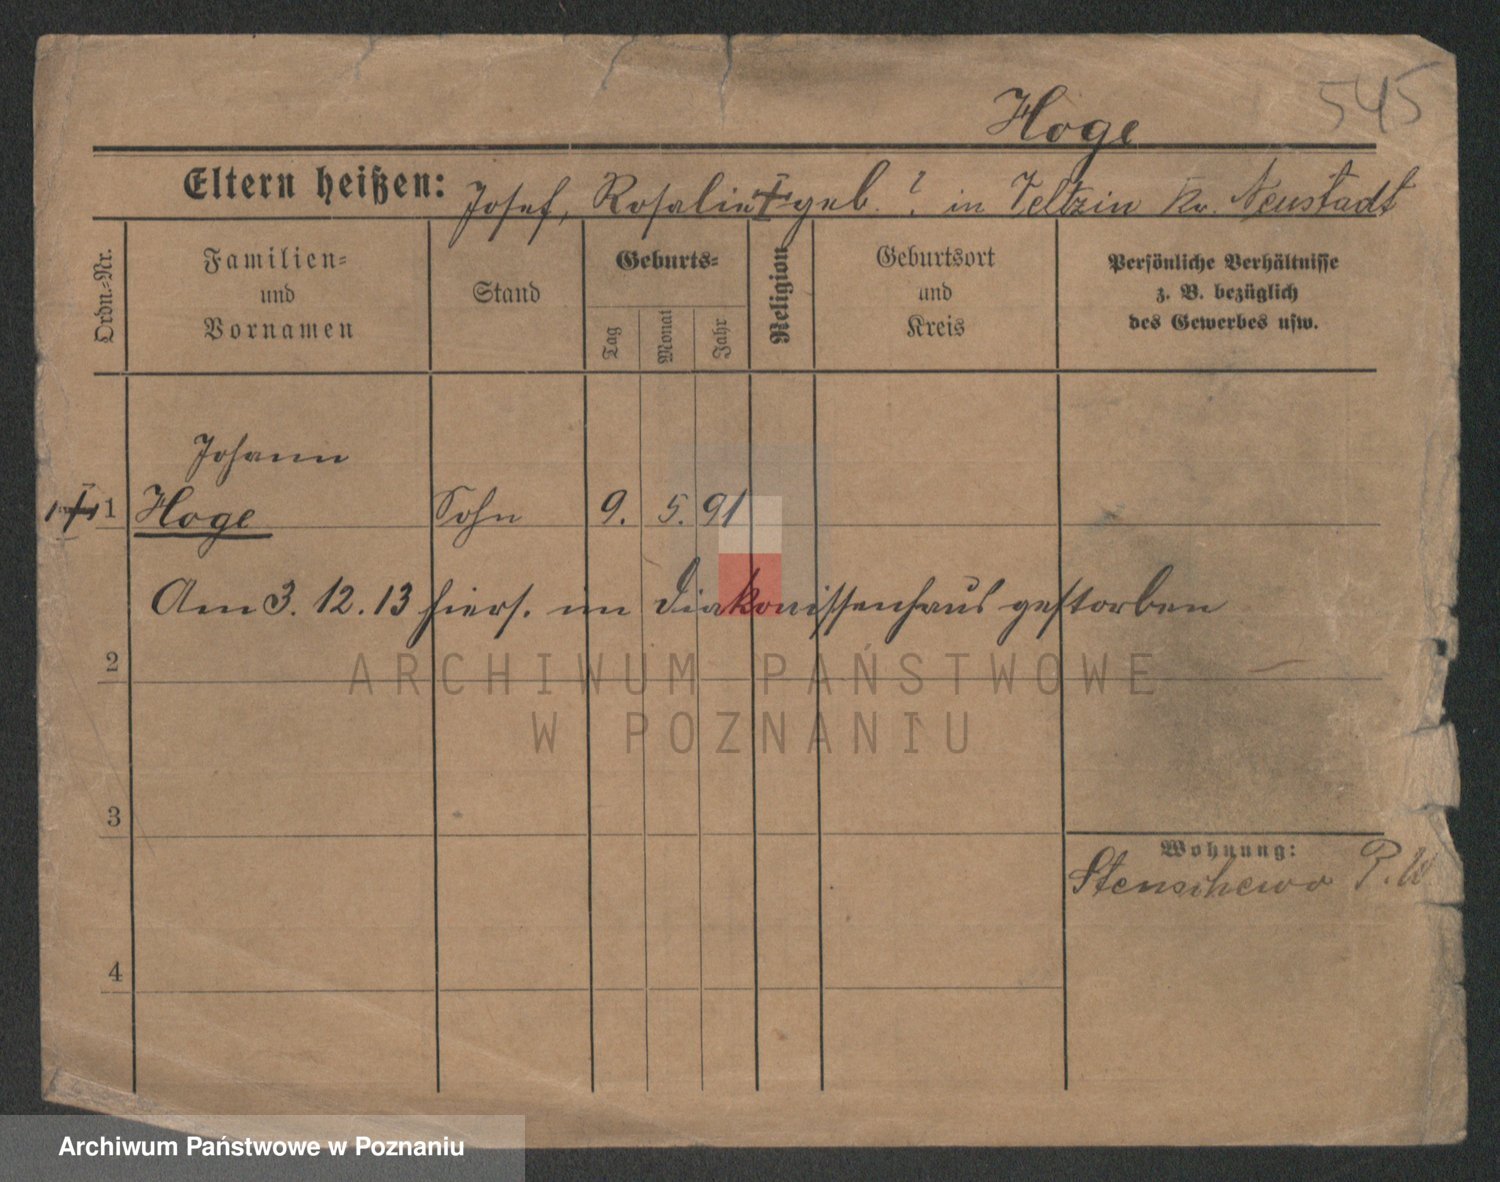 545
Hoge
Eltern heißen: Josef, Rosalie geb. ? in Veltzin Kr. Neustadt
Ordn.-Nr.
Familien-
und
Vornamen
Stand
Geburts-
Tag
Monat
Jahr
Religion
Geburtsort
und
Kreis
Persönliche Verhältnisse
z. B. bezüglich
des Gewerbes usw.
Johann
1 Hoge Sohn 9. 5. 91
Am 3. 12. 13 hiers. im Diakonissenhaus gestorben
2
ARCHIWUM PAŃSTWOWE
W POZNANIU
3
Wohnung:
Stenschewo P. W
4
Archiwum Państwowe w Poznaniu